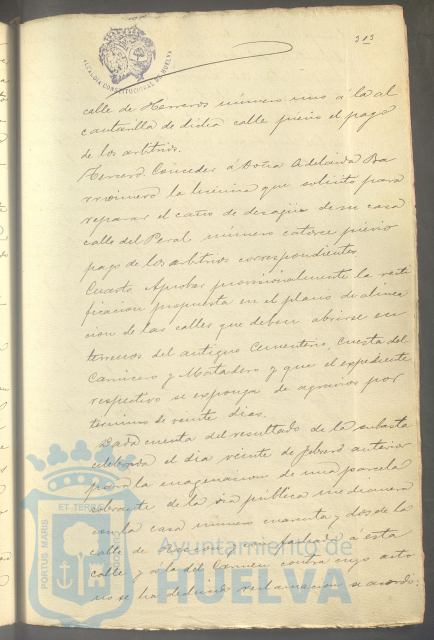 313
ALCALDIA CONSTITUCIONAL DE HUELVA
calle de Herreros número uno á la al
cantarilla de dicha calle previo el pago
de los arbitrios.
Tercero. Conceder á Doña Adelaida Ba
rroimero la licencia que solicita para
reparar el caño de desagüe de su casa
calle del Peral número catorce previo
pago de los arbitrios correspondientes.
Cuarto. Aprobar provisionalmente la recti
ficacion propuesta en el plano de alinea
cion de las calles que deben abrirse en
terrenos del antiguo Cementerio, Cuesta del
Carnicero y Matadero y que el expediente
respectivo se exponga de agravios por
término de veinte dias.
Dada cuenta del resultado de la subasta
celebrada el dia veinte de febrero anterior
para la enagenacion de una parcela
sobrante de la via pública medianera
con la casa número cuarenta y dos de la
calle de con fachada á esta
calle y á la del Carmen contra cuyo acto
no se ha deducido reclamacion se acordó:
PORTUS MARIS ET TERRAE CUSTODIA
Ayuntamiento de
HUELVA